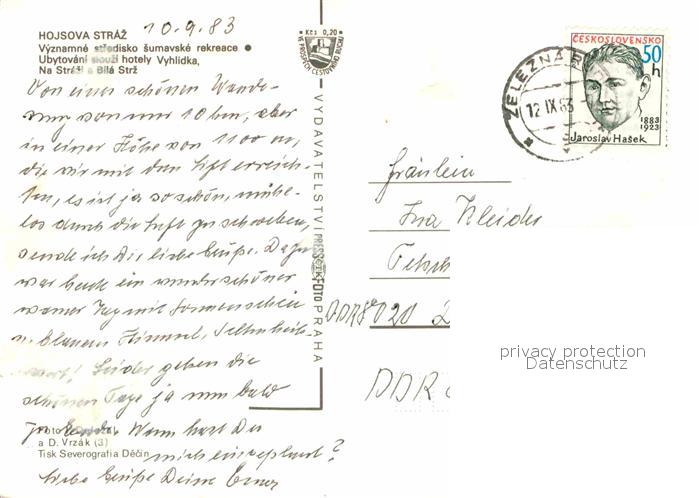 HOJSOVA STRÁŽ 10.9.83
Významné středisko šumavské rekreace ●
Ubytování slouží hotely Vyhlídka,
Na Stráži a Bílá Strž
Von einer schönen Wande-
rung von nur 10 km, aber
in einer Höhe von 1100 m,
die wir mit dem Lift erreich-
ten, es ist ja so schön, mühe-
los durch die Luft zu schweben,
sende ich Dir liebe Grüße. Dazu
war heute ein wunderschöner
warmer Tag mit Sonnenschein
u. blauem Himmel, Seltenheits-
wert! Leider gehen die
schönen Tage ja nun bald
zu Ende. Wann hast Du
mich eingeplant?
Liebe Grüße Deine
a D. Vrzák (3)
Tisk Severografia Děčín
Kčs 0,20
VE PROSPĚCH CESTOVNÍHO RUCHU
VYDAVATELSTVÍ PRESSFOTO PRAHA
ČESKOSLOVENSKO
50 h
1883
1923
Jaroslav Hašek
ŽELEZNÁ
12 IX 83
Fräulein
DDR 8020
DDR
privacy protection
Datenschutz